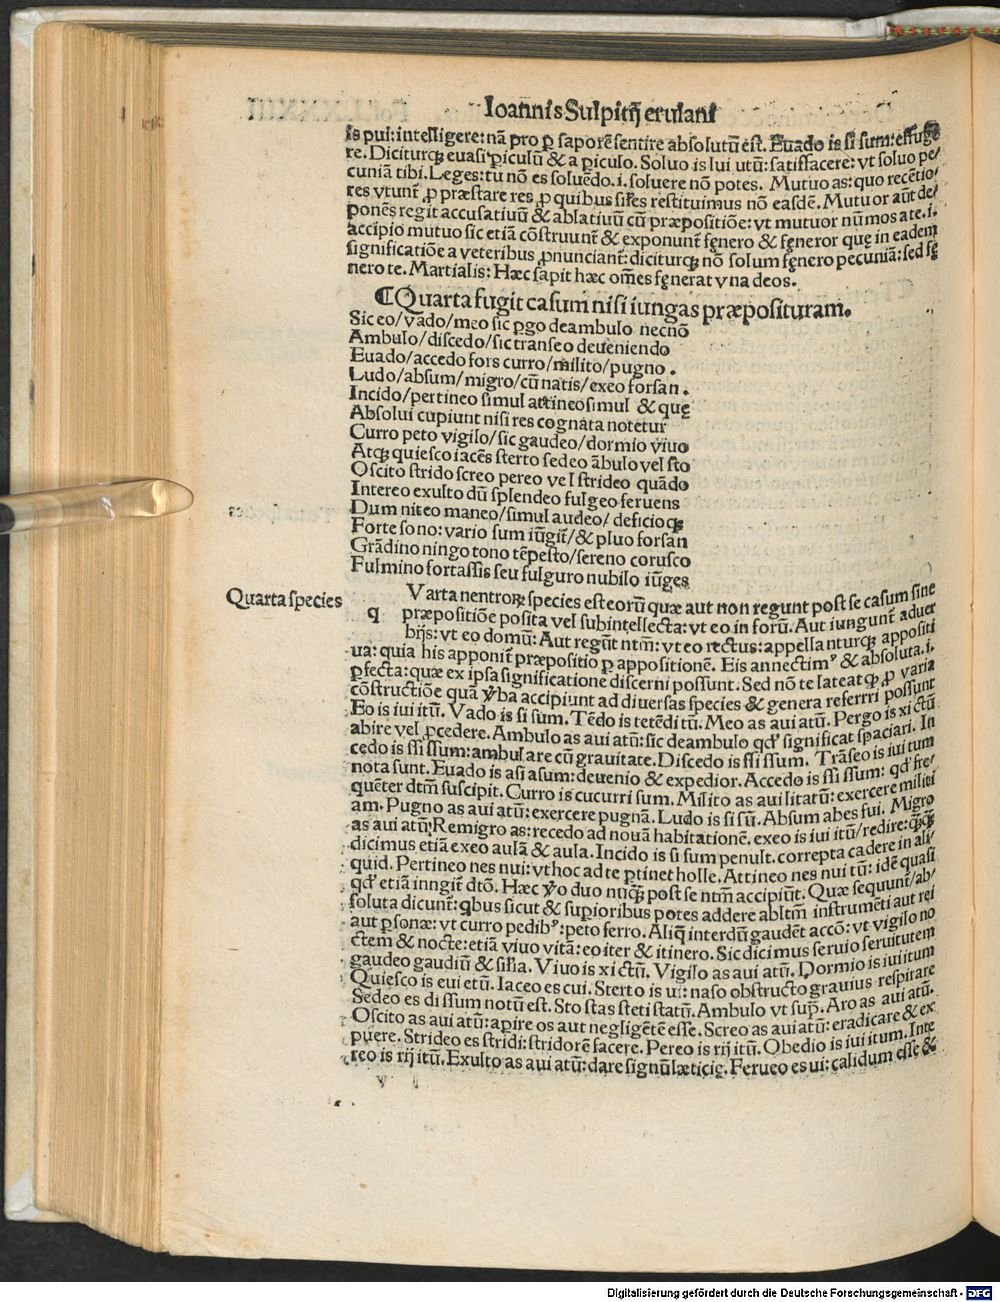 Ioannis Sulpitij erulani
is pui: intelligere: nã pro ꝑ saporẽ sentire absolutũ est. Euado is si sum: effuge
re. Diciturqꝫ euasi ꝑiculũ & a ꝑiculo. Soluo is lui utũ: satisfacere: vt soluo pe⸗
cuniã tibi. Leges: tu nõ es soluẽdo .i. soluere nõ potes. Mutuo as: quo recẽtio⸗
res vtunt̃ ꝓ præstare res ꝓ quibus siles restituimus nõ easdẽ. Mutuor aũt de⸗
ponẽs regit accusatiuũ & ablatiuũ cũ præpositiõe: vt mutuor nũmos a te .i.
accipio mutuo sic etiã cõstruunt̃ & exponunt̃ fęnero & fęneror quę in eadem
significatiõe a veteribus ꝓnunciant̃: diciturqꝫ nõ solum fęnero pecuniã: sed fę
nero te. Martialis: Hæc sapit hæc om̃es fęnerat vna deos.
¶ Quarta fugit casum nisi iungas præposituram.
Sic eo/vado/meo sic ꝑgo deambulo necnõ
Ambulo/discedo/sic transeo deueniendo
Euado/accedo fors curro/milito/pugno.
Ludo/absum/migro/cũ natis/exeo forsan.
Incido/pertineo simul attineo simul & quę
Absolui cupiunt nisi res cognata notetur
Curro peto vigilo/sic gaudeo/dormio viuo
Atqꝫ quiesco iacẽs sterto sedeo ãbulo vel sto
Oscito strido screo pereo vel strideo quãdo
Intereo exulto dũ splendeo fulgeo feruens
Dum niteo maneo/simul audeo/deficioqꝫ
Forte sono: vario sum iũgit̃/& pluo forsan
Grãdino ningo tono tẽpesto/sereno corusco
Fulmino fortassis seu fulguro nubilo iũges
Quarta species
q Varta nentroꝝ species est eorũ quæ aut non regunt post se casum sine
præpositiõe posita vel subintellecta: vt eo in forũ. Aut iungunt̃ aduer
bijs: vt eo domũ: Aut regũt ntm̃: vt eo rectus: appellanturqꝫ appositi
ua: quia his apponit̃ præpositio ꝑ appositionẽ. Eis annectim⁹ & absoluta .i.
ꝑfecta: quæ ex ipsa significatione discerni possunt. Sed nõ te lateat qꝫ ꝓ varia
cõstructiõe quã v̾ba accipiunt ad diuersas species & genera referrri possunt
Eo is iui itũ. Vado is si sum. Tẽdo is tetẽdi tũ. Meo as aui atũ. Pergo is xi ctũ
abire vel ꝓcedere. Ambulo as aui atũ: sic deambulo qd̾ significat spaciari. In
cedo is ssi ssum: ambulare cũ grauitate. Discedo is ssi ssum. Trãseo is iui itum
nota sunt. Euado is asi asum: deuenio & expedior. Accedo is ssi ssum: qd̾ fre⸗
quẽter dtm̃ suscipit. Curro is cucurri sum. Milito as aui litatũ: exercere militi
am. Pugno as aui atũ: exercere pugnã. Ludo is si sũ. Absum abes fui. Migro
as aui atũ: Remigro as: recedo ad nouã habitationẽ. exeo is iui itũ/redire: q̃q̃
dicimus etiã exeo aulã & aula. Incido is si sum penult. correpta cadere in ali⸗
quid. Pertineo nes nui: vt hoc ad te ꝑtinet holle. Attineo nes nui tũ: idẽ quasi
qd̾ etiã inngit̃ dtõ. Hæc v̾o duo nũqꝫ post se ntm̃ accipiũt. Quæ sequunt̃/ab⸗
soluta dicunt̃: qbus sicut & suꝑioribus potes addere abltm̃ instrumẽti aut rei
aut ꝑsonæ: vt curro pedib⁹: peto ferro. Aliq̃ interdũ gaudẽt accõ: vt vigilo no
ctem & nocte: etiã viuo vitã: eo iter & itinero. Sic dicimus seruio seruitutem
gaudeo gaudiũ & silia. Viuo is xi ctũ. Vigilo as aui atũ. Dormio is iui itum
Quiesco is eui etũ. Iaceo es cui. Sterto is ui: naso obstructo grauius respirare
Sedeo es di ssum notũ est. Sto stas steti statũ. Ambulo vt sup̃. Aro as aui atũ.
Oscito as aui atũ: aꝑire os aut negligẽtẽ esse. Screo as aui atũ: eradicare & ex
puere. Strideo es stridi: stridorẽ facere. Pereo is rij itũ. Obedio is iui itum. Inte
reo is rij itũ. Exulto as aui atũ: dare signũ læticię. Ferueo es ui: calidum esse &
Digitalisierung gefördert durch die Deutsche Forschungsgemeinschaft - DFG